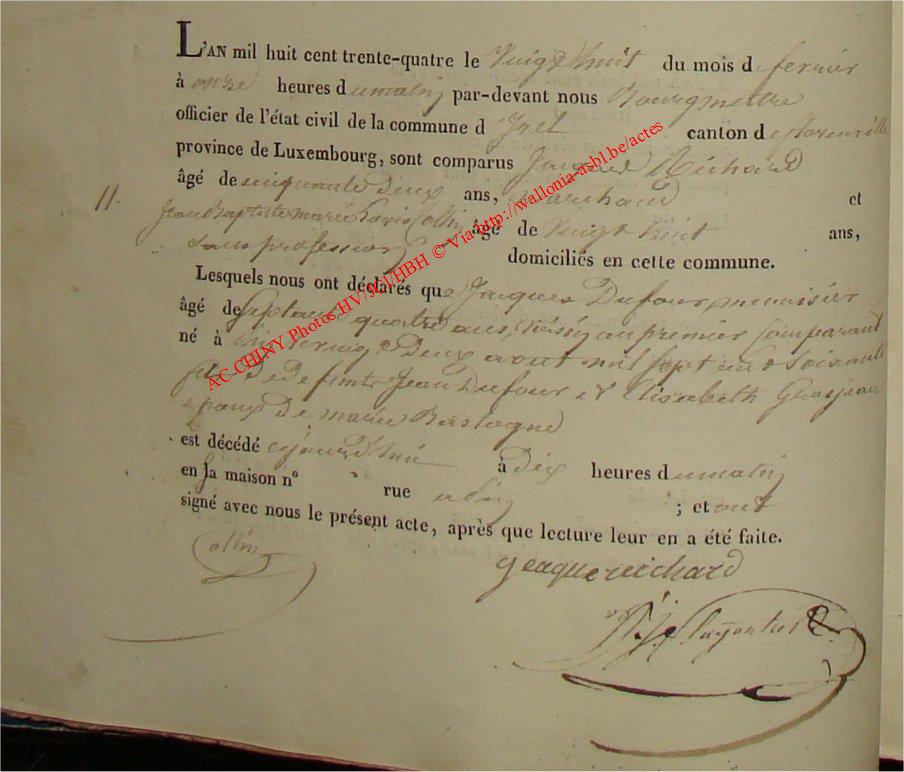 L'AN mil huit cent trente-quatre le Vingt huit du mois de fevrier
à onze heures du matin par-devant nous Bourgmestre
officier de l'état civil de la commune d'Izel canton de florenville
province de Luxembourg, sont comparus Jacques Richard
âgé de cinquante deux ans, marchand et
11.
Jean Baptiste marie Collin, âgé de Vingt huit ans,
sans profession domiciliés en cette commune.
Lesquels nous ont déclarés que Jacques Dufour, menuisier
âgé de septante quatre ans, voisin au premier Comparant
né à Deux aout mil sept cent Soixante
fils de defunts Jean Dufour et Elisabeth Grosjean
Epoux De marie Bastogne
est décédé cejourd'hui à Dix heures du matin
en sa maison n° rue ; et ont
signé avec nous le présent acte, après que lecture leur en a été faite.
Collin
geaque reichard
AC CHINY Photos HV/JCV/HBH © Via http://wallonia-asbl.be/actes